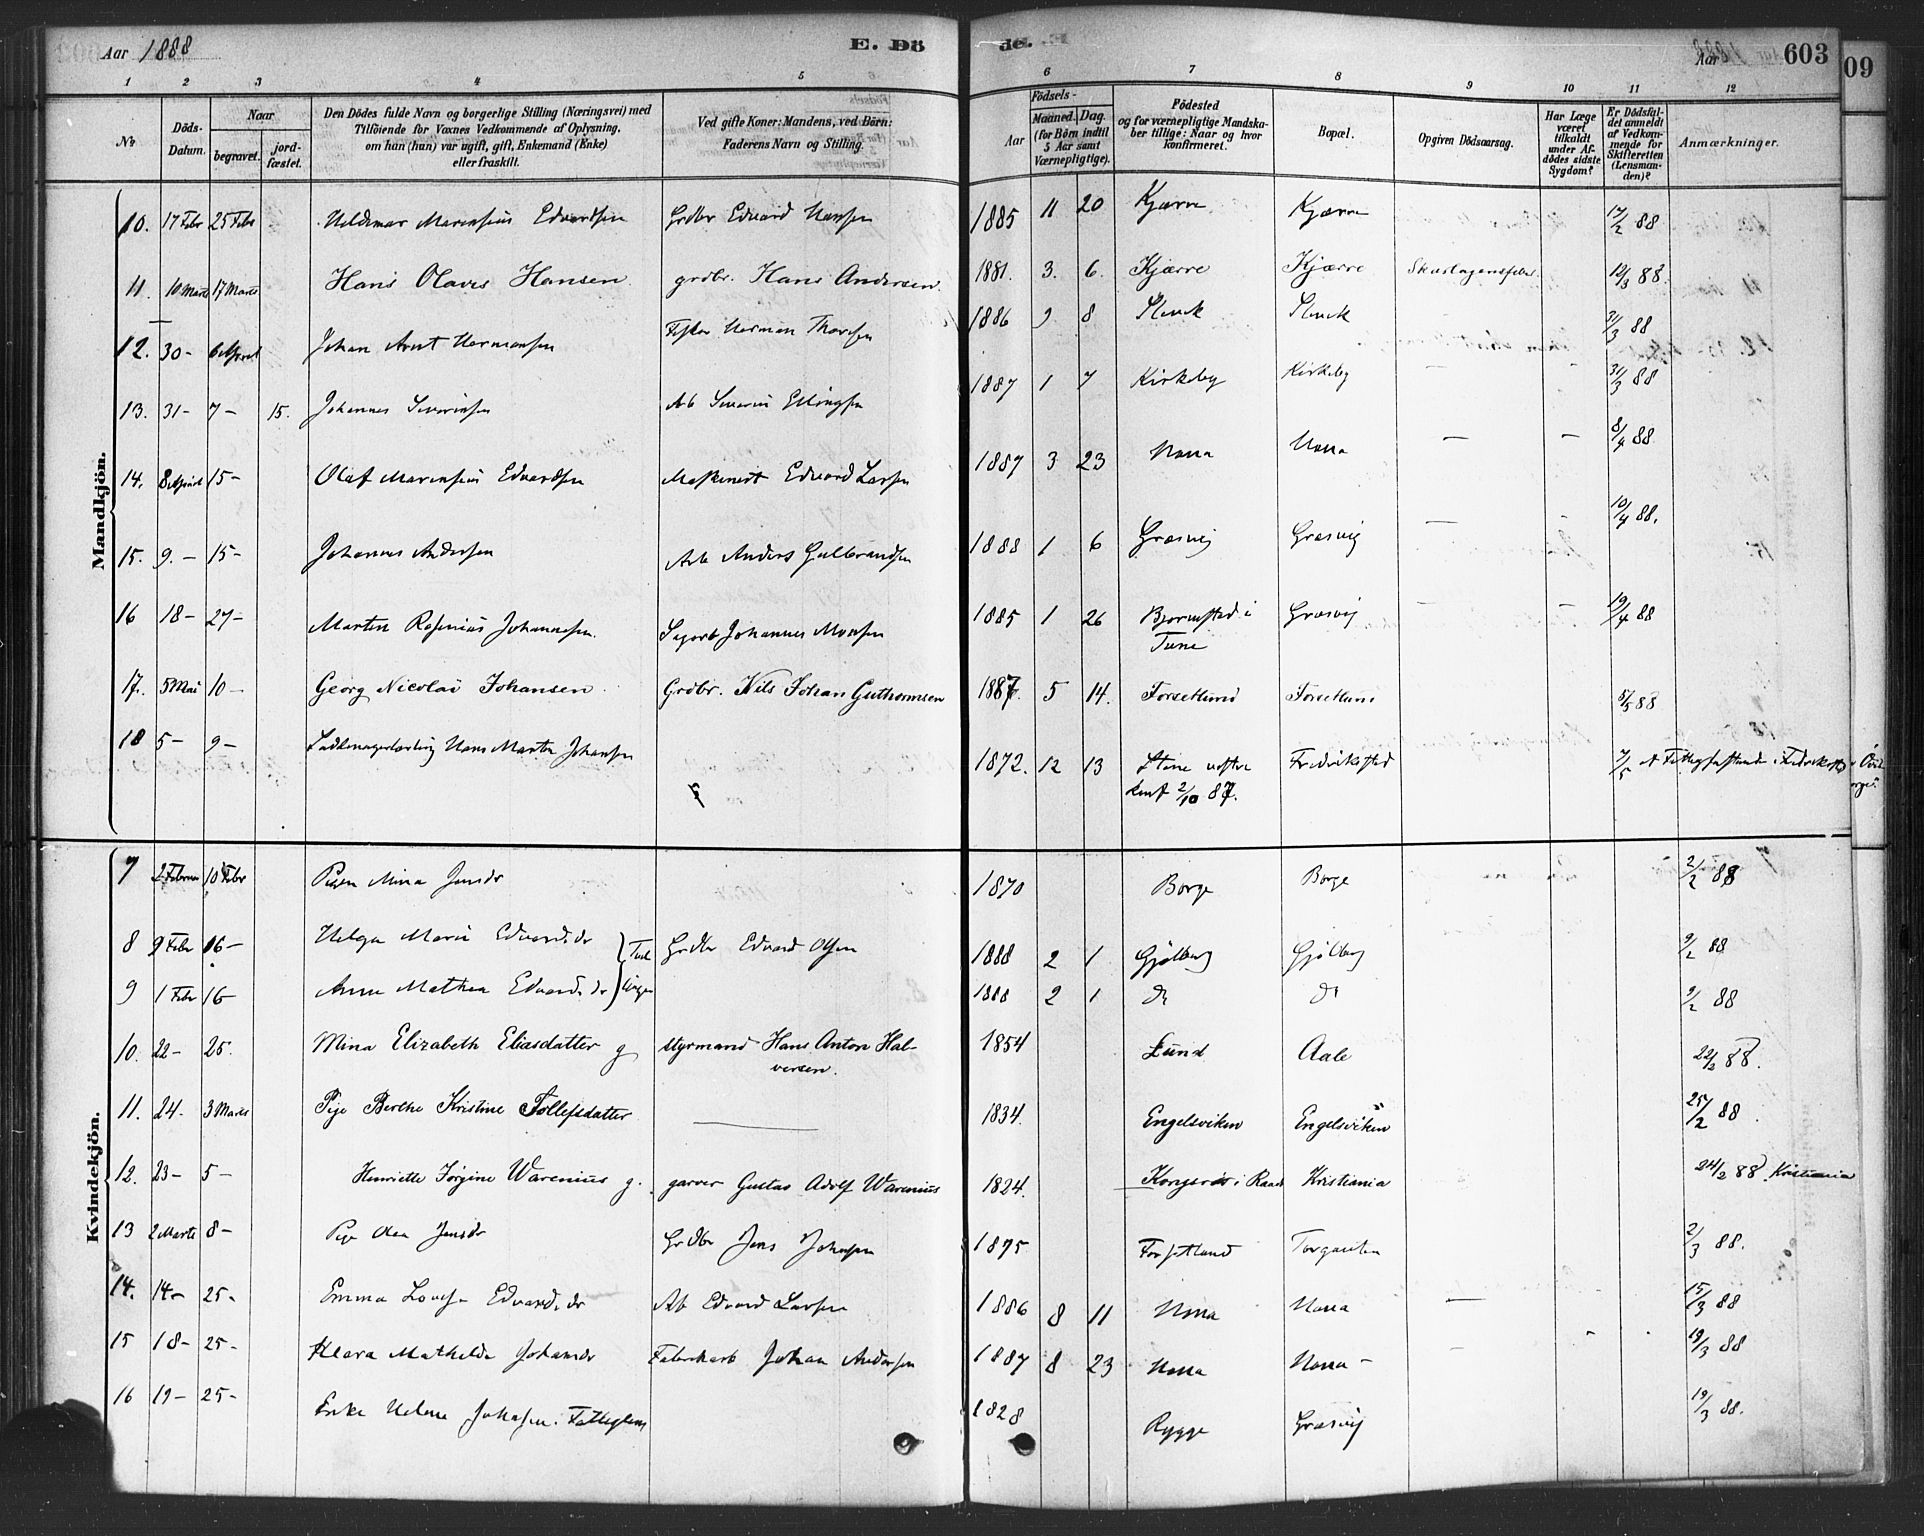 Aar 1888
E. Dö
de.
Aar 1888
603
09
1 2 3 4 5 6 7 8 9 10 11 12
No
Döds-Datum.
Naar
begravet.
jord-fæstet.
Den Dödes fulde Navn og borgerlige Stilling (Næringsvei) med
Tilföiende for Voxnes Vedkommende af Oplysning,
om han (hun) var ugift, gift, Enkemand (Enke)
eller fraskilt.
Ved gifte Koner: Mandens, ved Börn:
Faderens Navn og Stilling.
Födsels-
Aar
Maaned. Dag.
(for Börn indtil
5 Aar samt
Værnepligtige).
Födested
og for værnepligtige Mandska-
ber tillige: Naar og hvor
konfirmeret.
Bopæl.
Opgiven Dödsaarsag.
Har Læge
været
tilkaldt
under Af-
dödes sidste
Sygdom?
Er Dödsfal-
det anmeldt
af Vedkom-
mende for
Skifteretten
(Lensman-
den)?
Anmærkninger.
Mandkjön.
10. 17 Febr 25 Febr Hildemar Marensius Edvardsen Grdbr Edvard Hansen 1885 11 20 Kjærre Kjærre 17/2 88
11. 10 Marts 17 Marts Hans Olaves Hansen grdbr. Hans Andersen 1881. 3. 6. Kjærre Kjærre Skarlagensfeber 12/3 88.
12. 30- 6 April Johan Arnt Hermansen Fisker Herman Thoresen 1886 9 8 Slevik Slevik 31/3 88
13. 31- 7- 15. Johannes Severinsen Arb Severin Ellingsen 1887 1 7 Kirkeby Kirkeby 31/3 88
14. 8 April 15- Olaf Marensius Edvardsen Maskinist Edvard Larsen 1887 3 23 Nora Nora — — 8/4 88
15. 9.- 15- Johannes Andersen Arb Anders Gulbrandsen 1888 1 6 Græsvig Græsvig — 10/4 88.
16 18- 27- Martin Rasinius Johannesen. Sagarb Johannes Monsen 1885 1 26 Bjørnstad i Græsvig 19/4 88
Tune
17. 5 Mai 10- Georg Nicolai Johansen Grdbr. Nils Johan Guthormsen 1887. 5 14. Forsetlund Forsetlund 5/5 88
18 5- 9- Sadlmagerlærling Hans Martin Johansen 1872. 12 13 Stene vestre Fredrikstad 7/5 Fattighuset i Fredrikstad
konf 2/10 87.
Kvindekjön.
7 2 Februar 10 Febr Pigen Mina Jensdr 1870 Borge Borge 2/2 88
8 9 Febr 16- Helga Marie Edvardsdr } Tvil Grdbr Edvard Olsen 1888 2 1 Gjølberg Gjølberg 9/2 88
9 1 Febr 16 Anna Mathea Edvardsdr } linger 1888 2 1 do do 9/2 88
10. 22- 25. Mina Elizabeth Eliasdatter g styrmand Hans Anton Hal- 1854 Lund Aale 22/2 88.
versen.
11. 24- 3 Marts Pige Berthe Kristine Tollefsdatter — 1834. Engelsviken Engelsviken 25/2 88
12. 23- 5- Henriette Jørgine Warenius g. garver Gustav Adolf Warenius 1824. Kongsrød i Raade Kristiania 24/2 88. Kristiania
13 2 Marts 8- Pige Olea Jensdr Grdbr Jens Johnsen 1875 Forsetlund Torgauten 2/3 88.
14. 14- 25- Emma Lovise Edvardsdr Arb Edvard Larsen 1886 8 11 Nora Nora — 15/3 88
15 18- 25- Klara Mathilde Johansdr Fabrikarb Johan Andersen 1887 8 23 Nora Nora - 19/3 88
16 19- 25- Enke Helene Johnsen. Fattiglem 1828 Rygge Græsvig 19/3 88.